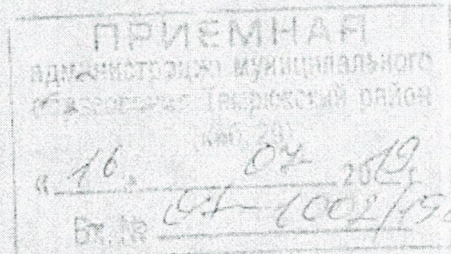 ПРИЕМНАЯ
администрации муниципального
образования Темрюкский район
(каб. 29)
« 16 » 07 2019 г.
Вх. № 1002/19